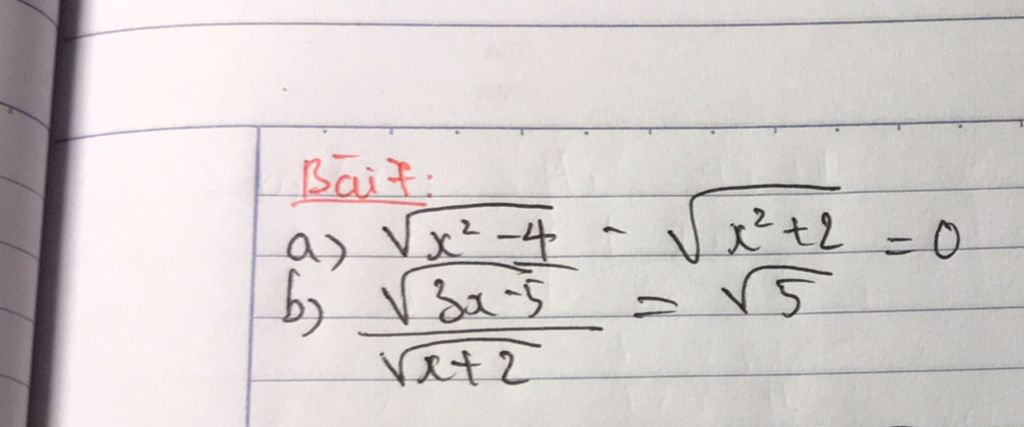 Bài 7:
a) √(x² - 4) - √(x² + 2) = 0
b) √(3x - 5) / √(x + 2) = √5